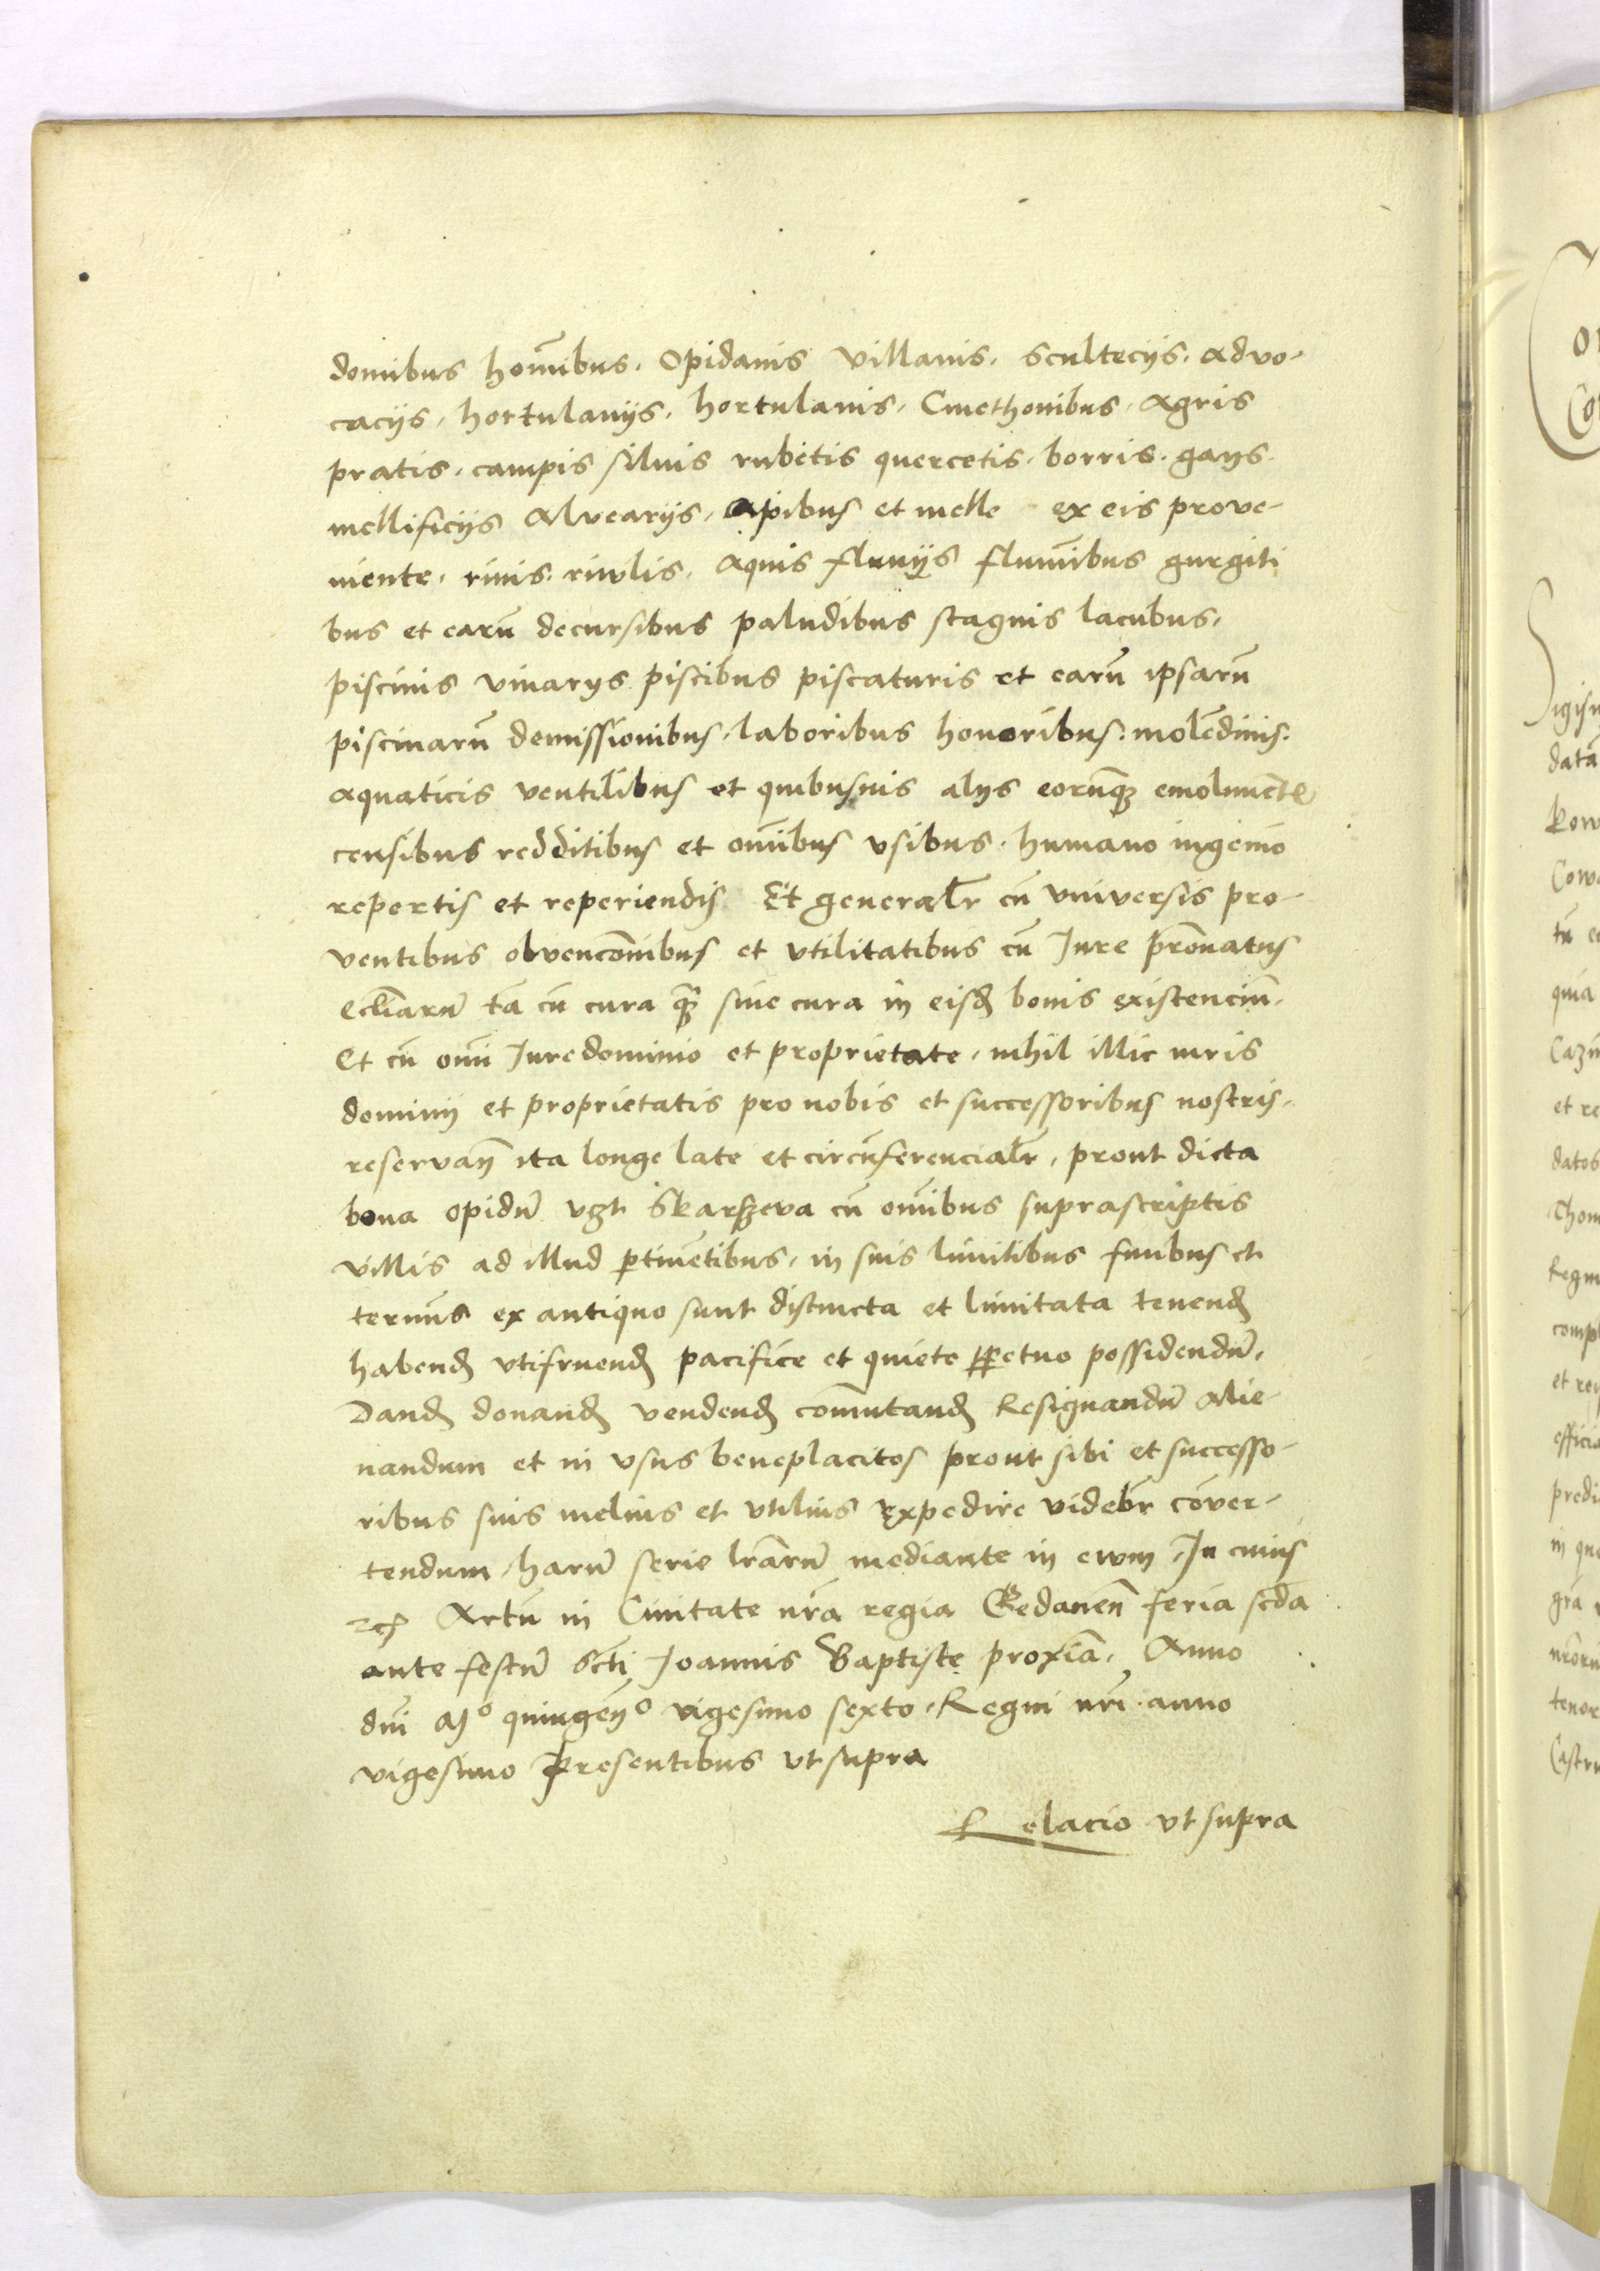 domibus hoīmbus. Opidanis villanis. scultecijs. advo-
cacijs, hortulanijs, hortulanis, Cmethonibus, Agris
pratis, campis siluis rubetis quercetis, borris. gays.
mellificijs Alvearijs, Apibus et melle ex eis prove-
niente, riuis. riuulis. Aquis fluvijs fluminibus gurgiti
bus et earū decursibus paludibus stagnis lacubus,
piscinis viuarijs piscibus piscaturis et earū ipsarū
piscinarū demissionibus, laboribus honoribus. molēdinis.
aquaticis ventilibus et quibusuis alijs eorūqȝ emolumēt
censibus redditibus et om̄ibus vsibus. humano ingenio
repertis et reperiendis Et generalr̄ cū vniversis pro-
ventibus obvenconībus et vtilitatibus cū Iure pr̄onatus
ecliarū tā cū cura qȝ sine cura in eisd bonis existenciū.
Et cū om̄i Iure dominio et proprietate, nihil illic iuris
dominij et proprietatis pro nobis et successoribus nostris.
reservan̄ ita longe late et circūferencialr̄, prout dicta
bona opidū vȝt Skarszeva cū om̄ibus suprascriptis
villis ad illud ptinētibus, in suis limitibus finibus et
termīs ex antiquo sunt distincta et limitata tenend
habend vtifruend pacifice et quiete ppetuo possidendū,
Dand donand vendend com̄utand Resignandū Alie-
nandum et in vsus beneplacitos prout sibi et successo-
ribus suis melius et vtilius Expedire videbr̄ cōver-
tendum, harū serie lr̄arū mediante in ewm, In cuius
rei Actū in Ciuitate nr̄a regia Gedanen̄ feria scd̄a
ante festū Scti Joannis Baptiste proxīa, Anno
dn̄i Mº quingenº vigesimo sexto, Regni nr̄i anno
vigesimo Presentibus vt supra
Relacio vt supra